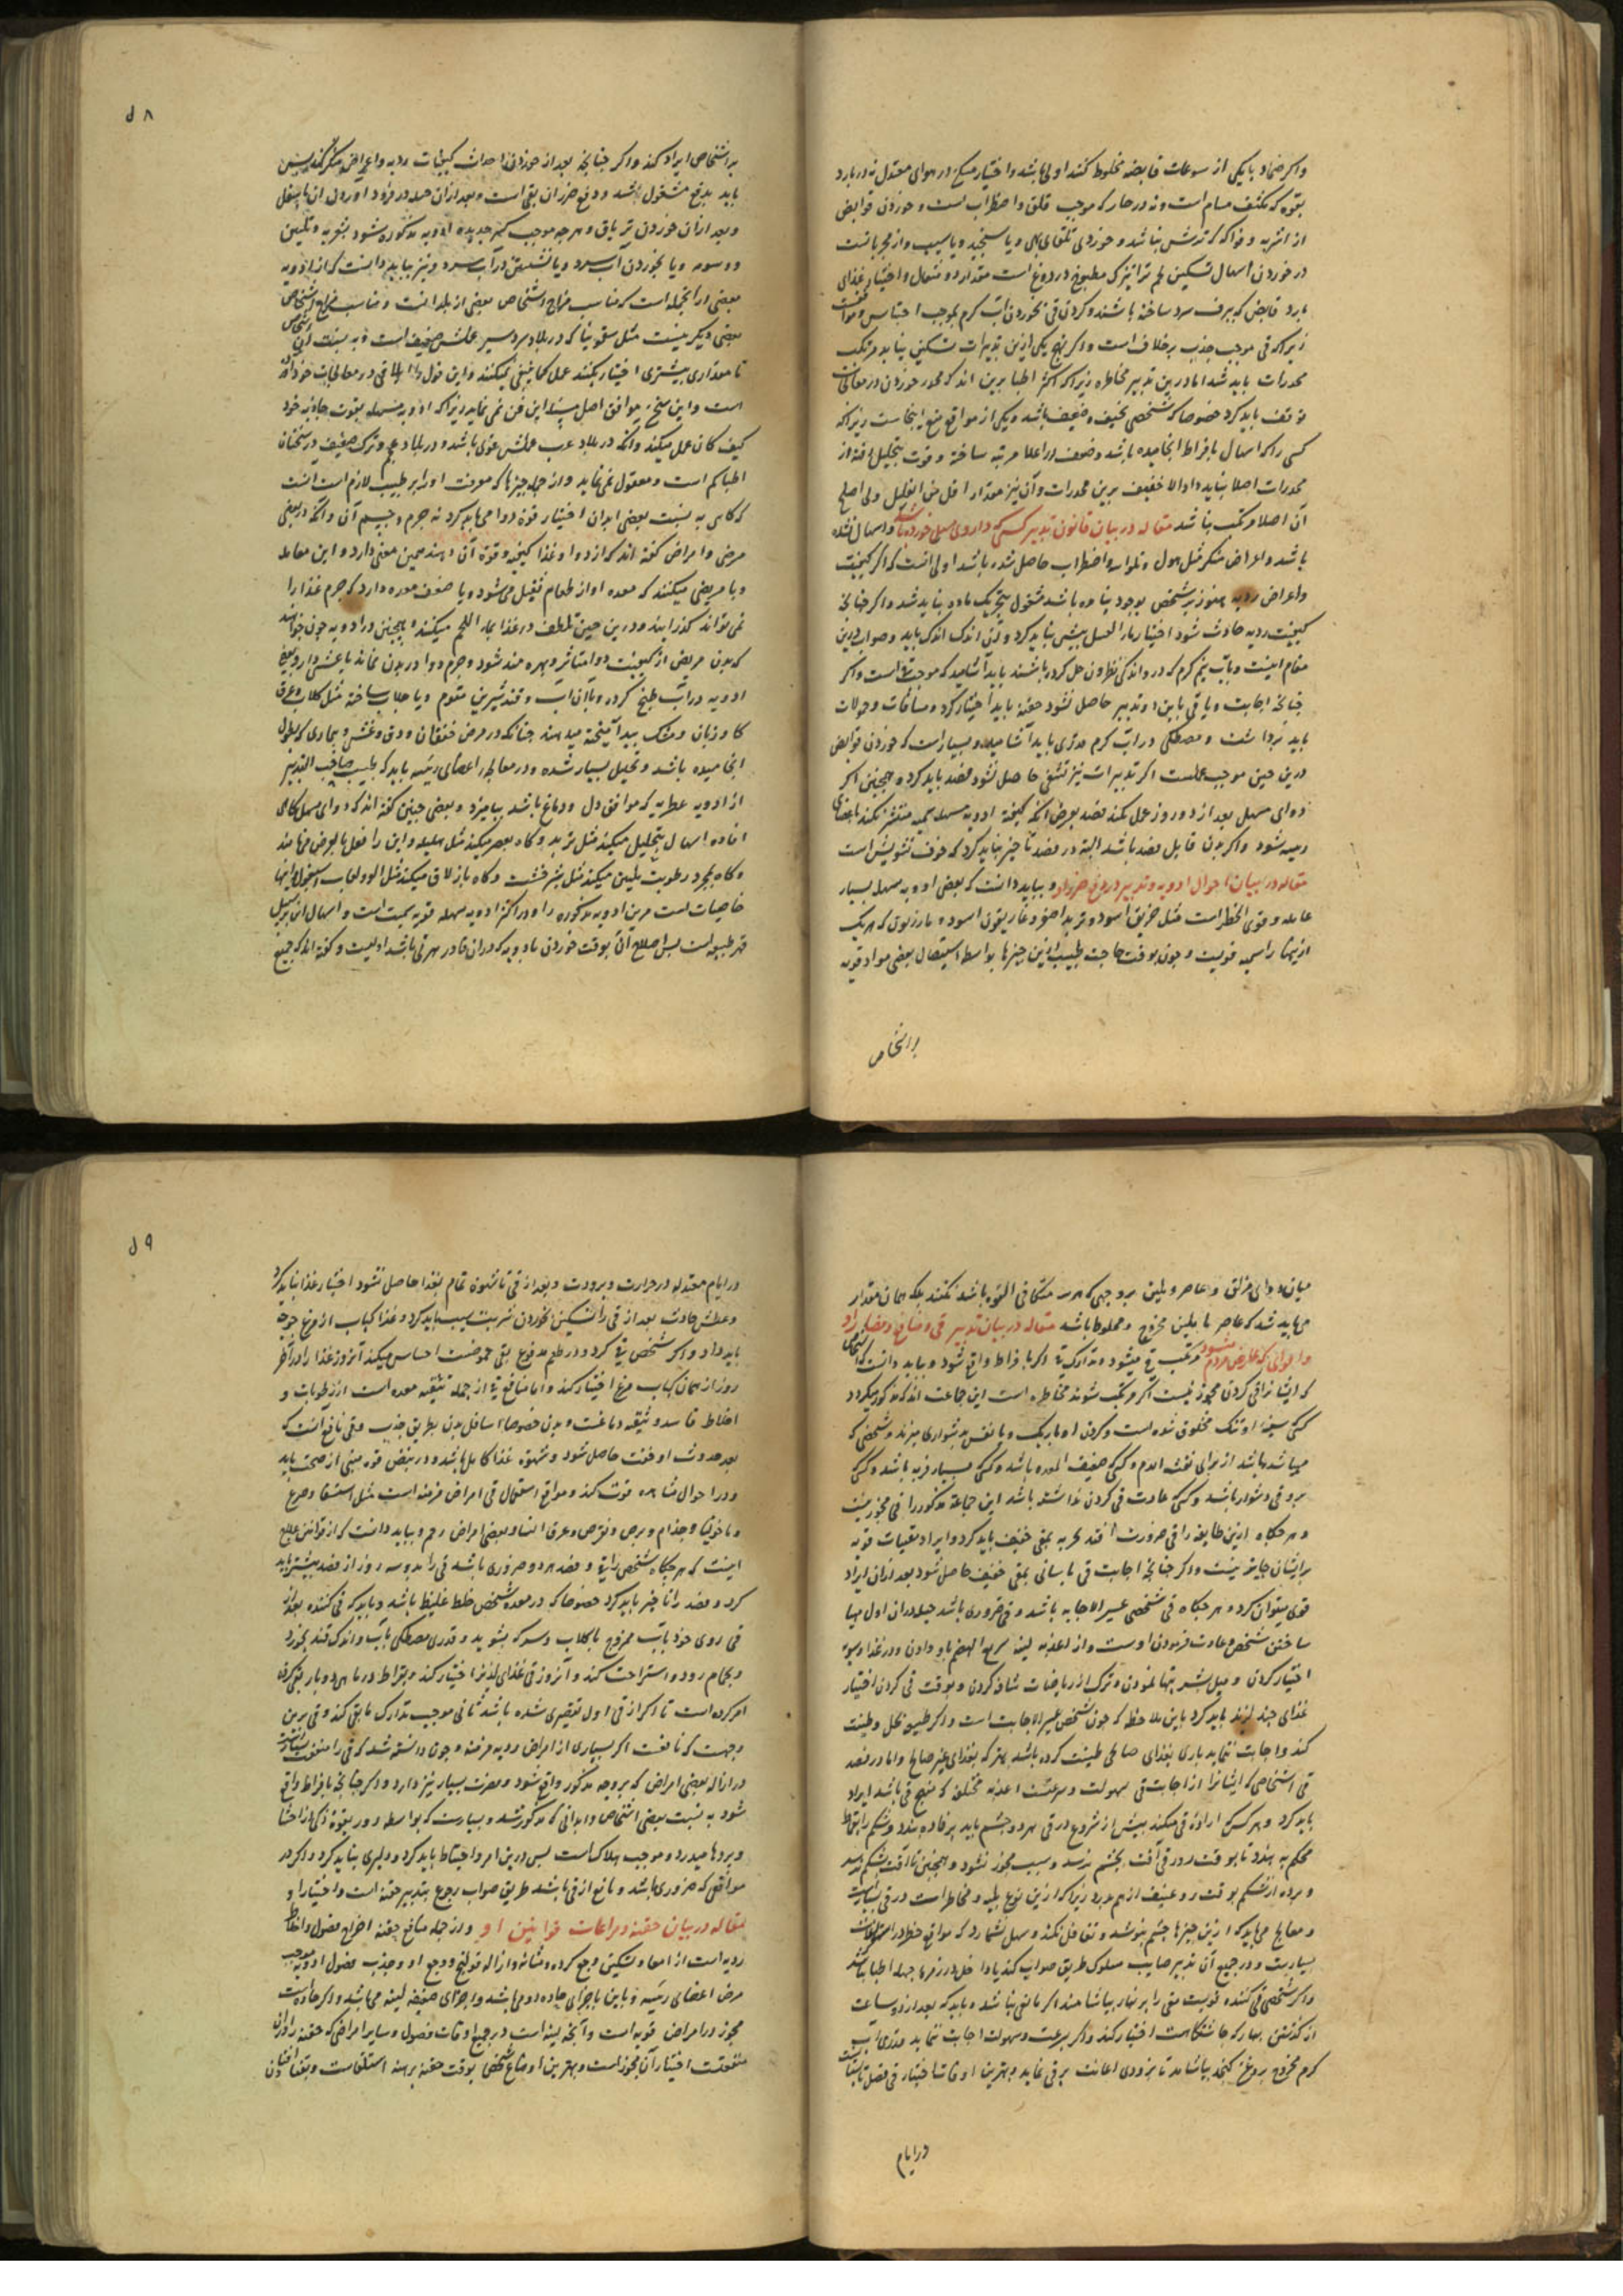 واکر ضماد با یکی از سوعات قابضه مخلوط کنند اولی باشد و اختیار مسکن در هوای معتدل نه در بارد
بقوه که مکثف مسام است و نه در حار که موجب قلق و اضطراب است و خوردن قوابض
از اشربه و فواکه که ترش نباشد و خوردن و یا سنجد و یا سیب و از مجربانست
در خوردن اسهال تسکین تره تیزک مطبوخ در دوغ است مقدار دو مثقال و اختیار غذای
بارد قابض که ببرف سرد ساخته باشند و کردن قی بخوردن آب کرم بموجب احتباس
زیرا که قی موجب جذب بر خلاف است و اکر بهیچ یکی ازین تدبیرات تسکین نیابد مرتکب
مخدرات باید شد اما درین تدبیر مخاطره زیرا که اکثر اطبا برین اند که مخدر خوردن در
توقف باید کرد خصوصا که شخصی نحیف و ضعیف باشد و یکی از مواقع منع اینجاست زیرا که
کسی را که اسهال بافراط انجامیده باشد و ضعف او را علا مرتبه ساخته و قوت بتحلیل رفته از
مخدرات اصلا نباید داد الا خفیف برین مخدرات و آن نیز مقدار اقل من القلیل ولی اصلح
آن اصلا مرتکب نباشد مقاله در بیان قانون تدبیر کسی که داروی مسهل خورده باشد و اسهال نشده
باشد و اعراض منکر مثل هول و اضطراب حاصل شده باشد اولی انست که اکر کیفیت
و اعراض ردیه هنوز بر شخص بوجود نیامده باشد مشغول بتحریک ماده نباید شد و اکر چنانچه
کیفیت ردیه حادث شود اختیار بیش نباید کرد و اندک اندک باید و صواب درین
مقام اینست و بآب نیم کرم که درو اندکی نطرون حل کرده باشند باید آشامید که موجب است و اکر
چنانچه اجابت و یا قی باین دو تدبیر حاصل نشود حقنه باید اختیار کرد و شیافات و حمولات
باید برداشت و مصطکی در آب کرم مقدری باید آشامید و بسیار است که خوردن قوابض
درین حین موجب عملست اکر تدبیرات نیز تشفی حاصل نشود فصد باید کرد و همچنین اکر
دوای مسهل بعد از دو روز عمل نکند فصد بعرض آنکه کیفیت ادویه مسهله سمیه منتشر نکند باعضای
رئیسه شود و اکر بدن قابل فصد باشد البته در فصد تأخیر نباید کرد که خوف تشویش است
مقاله در بیان احوال ادویه و تدبیر در دفع ضرر او و بباید دانست که بعضی ادویه مسهله بسیار
عامله و قوی الخطر است مثل خربق اسود و تربد اصفر و غاریقون اسود و مازریون که هر یک
ازینها را سمیه قویست و چون بوقت حاجت طبیب ازین چیزها بواسطه استیصال بعضی مواد قویه
بر اشخاص
۵۸
بر اشخاص ایراد کند و اکر چنانچه بعد از خوردن احداث کیفیات ردیه و اعراض منکر کند پس
باید بدفع مشغول شد و دفع ضرر آن بقی است و بعد ازان حیله در فرود آوردن آن باسفل
و بعد ازان خوردن تریاق و هرچه موجب کسر حدت ادویه مذکوره شود بشربه و تلیین
و دسومه و یا بخوردن آب سرد و یا نشستن در آب سرد و نیز بباید دانست که از ادویه
بعضی از آنجمله است که مناسب مزاج اشخاص بعضی از بلدانست و مناسب مزاج اشخاص
بعضی دیکر نیست مثل سقمونیا که در بلاد سردسیر عملش ضعیف است و به نسبت آن
تا مقداری بیشتری اختیار نکنند عمل کما ینبغی نمیکنند و این قول را در معالجات خود آورده
است و این سخن موافق اصل مسئله این فن نمی نماید زیرا که ادویه مسهله بقوت جاذبه خود
کیف کان عمل میکند و آنکه در بلاد عرب عملش قوی باشد و در بلاد عجم و ترک ضعیف در سخنان
اطبا کم است و معقول نمی نماید و از جمله چیزها که معرفت او بر طبیب لازم است انست
که کاهی به نسبت بعضی ابدان اختیار قوة دوا می باید کرد نه جرم و جسم آن و آنکه در بعضی
مرضی و امراض کفته اند که از دوا و غذا کیفیت و قوة آن دهند همین معنی دارد و این معامله
و با مریضی میکنند که معده او از طعام ثقیل می شود و یا ضعف معده دارد که جرم غذا را
نمی تواند کذرانید و درین حین تلطف در غذا بماء اللحم میکنند و همچنین در ادویه چون خواهند
که بدن مریض از کیفیت دوا متاثر و بهره مند شود و جرم دوا در بدن نماند
ادویه در آب طبخ کرده و با آن آب و قند شیرین مقوم و یا جلاب ساخته مثل کلاب و عرق
کاو زبان و مشک بید آمیخته میدهند چنانکه در مرض خفقان و دق و غشی و بیماری که بطول
انجامیده باشد و تحلیل بسیار شده و در معالجه اعضای رئیسه باید که طبیب صائب التدبیر
از ادویه عطریه که موافق دل و دماغ باشد بیامیزد و بعضی چنین کفته اند که دوای مسهل کاهی
افاده اسهال بتحلیل میکند مثل تربد و کاه بعصر میکند مثل هلیله و این را فعل بالعرض می نامند
و کاه بمجرد رطوبت تلیین میکند مثل شیرخشت و کاه بازلاق میکند مثل آلو و لعاب اسبغول و اینها
خاصیات است مرین ادویه مذکوره را و در اکثر ادویه مسهله قویه سمیت است و اسهال آن بر سبیل
قهر طبیعت است پس اصلاح آن بوقت خوردن بادویه که دران قادر باشد اولیست و کفته اند که جمیع
میان دوای مزلق و عاصر و ملین بر وجهی که هر سه متکافی القوه باشند نکنند بلکه همان مقدار
می باید شد که عاصر با ملین ممزوج و مخلوط باشد مقاله در بیان تدبیر قی و منافع و مضار او
و احوالی که عارض مردم میشود مرتکب قی میشود و تدارک قی اکر بافراط واقع شود و بباید دانست که اشخاص
که ایشانرا قی کردن مجوز نیست اکر مرتکب شوند مخاطره است این جماعت اند که مذکور میکردد
کسی که سینه او تنک مخلوق شده است و کردن او باریک و یا نفس بدشواری میزند و شخصی که
میباشد باشد از برای نفث الدم و کسی که ضعیف المعده باشد و کسی که بسیار فربه باشد و کسی که
برو قی دشوار باشد و کسی که عادت قی کردن نداشته باشد این جماعة مذکور را قی مجوز نیست
و هرجکاه ازین طایفه را قی ضرورت افتد تجربه بقی خفیف باید کرد و ایراد مقیات قویه
برایشان جایز نیست و اکر چنانچه اجابت قی باسانی بمقی خفیف حاصل شود بعد ازان ایراد
قوی میتوان کرد و هرجکاه قی شخصی عسیر الاجابه باشد و قی ضروری باشد حیله دران اول مهیا
ساختن شخص و عادت فرمودن اوست و از اغذیه لینه سریع الهضم باو دادن و در غذا دسومه
اختیار کردن و میل بشیرینیها نمودن و ترک از ریاضات شاقه کردن و بوقت قی کردن اختیار
غذای چند لزند باید کرد باین ملاحظه که چون شخص عسیر الاجابت است و اکر طبیعت بخل و طینت
کند و اجابت ننماید باری بغذای صالحی طینت کرده باشد بهتر که بغذای غیر صالح و اما در فصد
قی اشخاصی که ایشانرا از اجابت قی سهولت و سرعتست اغذیه مختلفه که مهیج قی باشد ایراد
باید کرد و هر کس که اراده قی میکند پیش از شروع در قی هر دو چشم باید برفاده بندد و شکم را بقماط
محکم به بندد تا بوقت زور قی آفت بچشم نرسد و سبب مجوز نشود و همچنین تا آفت بشکم نرسد
و پرده از شکم بوقت زور عنیف از هم ندرد زیرا که ازین نوع بلیه و مخاطر است در قی بسیار است
و معالج می باید که ازین چیزها چشم نپوشد و تغافل نکند و سهل نشمارد که مواقع خطر در است
بسیارست و در جمیع آن تدبیر صایب مسلوک طریق صواب کند یا داخل در زمره جهله اطبا نباشد
و اکر شخصی قی کننده تقویت مقی را بر نهار بیاشامند اکر مانعی نباشد و باید که بعد از دو ساعت
از کذشتن نهار که چاشتکاهست اختیار کند و اکر بسرعت و سهولت اجابت ننماید قدری آب
کرم ممزوج بروغن کنجد بیاشامد تا بزودی اعانت بر قی نماید و بهترین اوقات اختیار قی فصل تابستانست
در ایام
۵۹
در ایام معتدله در حرارت و برودت و بعد از قی تا شهوة تمام بغذا حاصل نشود اختیار غذا نباید کرد
و عطش حادث بعد از قی را تسکین بخوردن شربت سیب باید کرد و غذا کباب از مرغ جوجه
باید داد و اکر شخصی قی کرد و در طعم مدفوع بقی حموضت احساس میکند آنروز غذا را در آخر
روز از همان کباب مرغ اختیار کند و اما منافع قی از جمله تنقیه معده است از رطوبات و
اخلاط فاسده و تنقیه دماغست و بدن خصوصا اسافل بدن بطریق جذب و قی نافع انست که
بعد حدوث او خفت حاصل شود و شهوة غذا کامل باشد و در نبض قوه مبنی از صحت باید
و در احوال مشاهده قوت کند و مواقع استعمال قی امراض مزمنه است مثل استسقا و صرع
و مالیخولیا و جذام و برص و نقرس و عرق النسا و بعضی امراض رحم و بباید دانست که از قوانین علاج
اینست که هرجکاه شخصی را قی و فصد هر دو ضروری باشد قی را به دو سه روز از فصد پیشتر باید
کرد و فصد را تاخیر باید کرد خصوصا که در معده شخص خلط غلیظ باشد و باید که قی کننده بعد از
قی روی خود بآب ممزوج با کلاب و سرکه بشوید و قدری مصطکی بآب و اندک قند بخورد
و بحمام رود و استراحت کند و آنروز قی غذای لذیذ اختیار کند و بقراط در ماهی دو بار بقی کردن
امر کرده است تا اکر از قی اول تقصیری شده باشد ثانی موجب تدارک مابقی کند و قی برین
وجهت که نافعست اکر بسیاری از امراض ردیه مزمنه و چون دانسته شد که قی را منفعت بسیارست
در ازاله بعضی امراض که بر وجه مذکور واقع شود و مضرت بسیار نیز دارد و اکر چنانچه بافراط واقع
شود به نسبت بعضی اشخاص و ابدانی که مذکور شد و بسیارست که بواسطه زور بقوة رکها از احشا
و پردها میدرد و موجب هلاک است پس درین امر احتیاط باید کرد و دلیری نباید کرد و اکر در
مواقعی که ضروری باشد و مانع از قی باشد طریق صواب رجوع بتدبیر حقنه است و اختیار او
مقاله در بیان حقنه و مراعات قوانین او و از جمله منافع حقنه اخراج فضول و اخلاط
ردیه است از امعا و تسکین وجع کرده و مثانه و ازاله قولنج و وجع او و جذب فضول او بموجب
مرض اعضای رئیسه و باین با اجزای حاده اولی باشد و اجزای ضعیفه لینه می باشد و اکر حاده است
مجوز در امراض قویه است و آنچه لینه است در جمیع اوقات فصول و سایر امراض که حقنه را دران
منفعتست اختیار آن مجوز است و بهترین اوضاع شخص بوقت حقنه بر هیئه استلقاست و بقفا افتادن